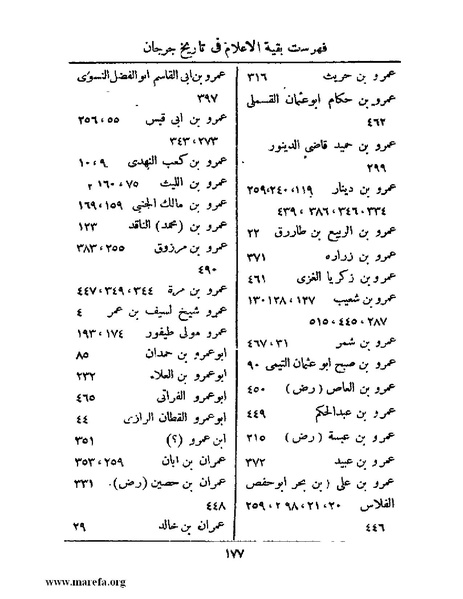 فهرست بقية الاعلام فى تاريخ جرجان
عمرو بن حريث ٣١٦
عمرو بن حكام ابوعثمان القسملى
٤٦٢
عمرو بن حميد قاضى الدينور
٢٩٩
عمرو بن دينار ١١٩،٢٤٠،٢٥٩
٣٣٤،٣٤٦،٣٨٦،٤٣٩
عمرو بن الربيع بن طاررق ٢٢
عمرو بن زراره ٣٧١
عمرو بن زكريا الغزى ٤٦١
عمرو بن شعيب ١٣٧،١٣٨،١٣٠
٢٨٧،٤٤٥،٥١٥
عمرو بن شمر ٣١،٤٦٧
عمرو بن صبح ابو عثمان التيمى ٩٠
عمرو بن العاص (رض) ٤٥٠
عمرو بن عبدالحكم ٤٤٩
عمرو بن عبسة (رض) ٣١٥
عمرو بن عبيد ٣٧٢
عمرو بن على بن بحر ابوحفص
الفلاس ٢٠،٢١،٢٩٨،٢٥٩
٤٤٦
عمرو بن ابى القاسم ابو الفضل النسوى
٣٩٧
عمرو بن ابى قيس ٥٥،٢٥٦
٢٧٣،٣٤٣
عمرو بن كعب النهدى ٩،١٠
عمرو بن الليث ٧٥،١٦٠م
عمرو بن مالك الجنبى ١٥٩،١٦٩
عمرو بن (محمد) الناقد ١٢٣
عمرو بن مرزوق ٢٥٥،٣٨٣
٤٩٠
عمرو بن مرة ٣٤٤،٣٤٩،٤٤٧
عمرو شيخ لسيف بن عمر ٤
عمرو مولى طيفور ١٧٤،١٩٣
ابوعمرو بن حمدان ٨٥
ابوعمرو بن العلاء ٢٣٢
ابوعمرو الفراتى ٤٦٥
ابوعمرو القطان الرازى ٤٤
ابن عمرو (؟) ٣٥١
عمران بن ابان ٢٥٩،٣٥٣
عمران بن حصين (رض). ٣٣١
٤٤٨
عمران بن خالد ٢٩
١٧٧
www.marefa.org